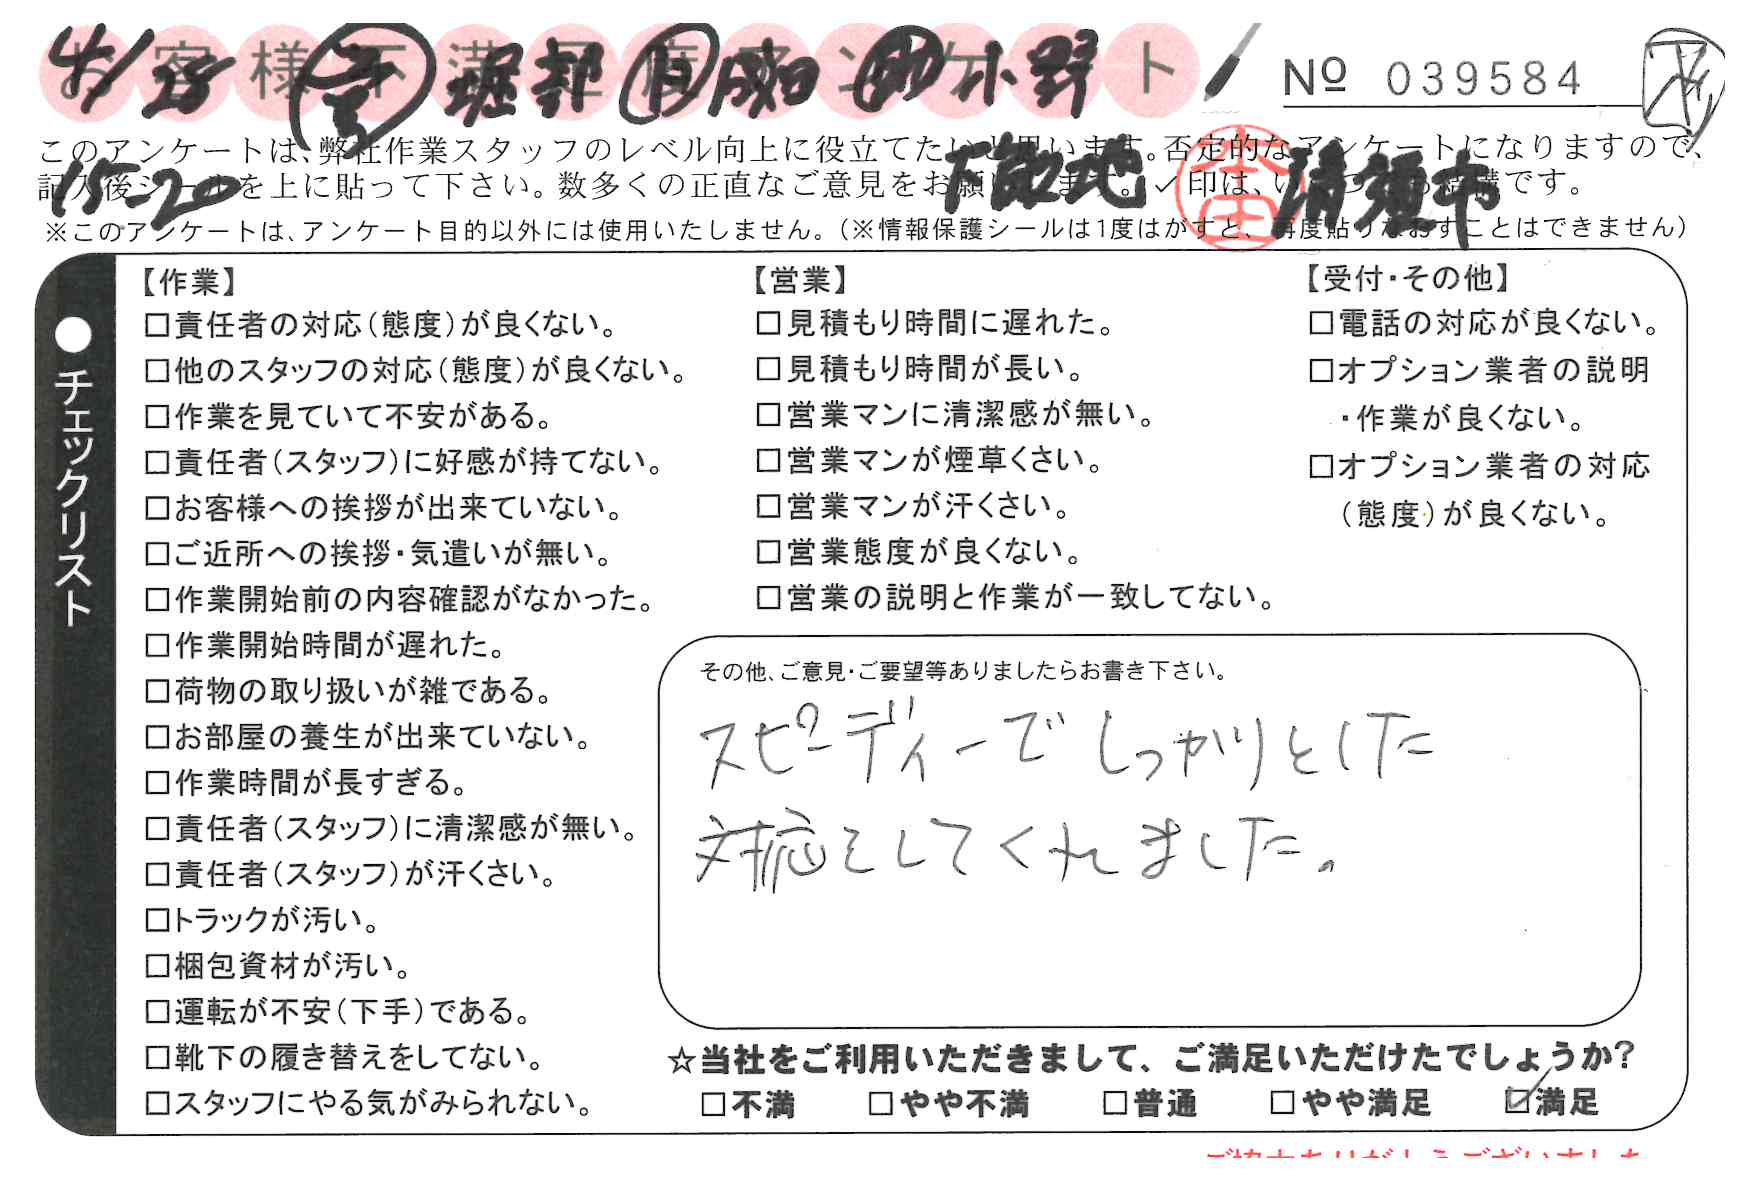 お客様不満足度アンケート
Nº 039584
4/25 堀部 小野
このアンケートは、弊社作業スタッフのレベル向上に役立てたいと思います。否定的なアンケートになりますので、
記入後シールを上に貼って下さい。数多くの正直なご意見をお願いします。✓印は、いくつでも結構です。
15-20 清須市
※このアンケートは、アンケート目的以外には使用いたしません。（※情報保護シールは1度はがすと、再度貼りなおすことはできません）
●チェックリスト
【作業】
□責任者の対応（態度）が良くない。
□他のスタッフの対応（態度）が良くない。
□作業を見ていて不安がある。
□責任者（スタッフ）に好感が持てない。
□お客様への挨拶が出来ていない。
□ご近所への挨拶・気遣いが無い。
□作業開始前の内容確認がなかった。
□作業開始時間が遅れた。
□荷物の取り扱いが雑である。
□お部屋の養生が出来ていない。
□作業時間が長すぎる。
□責任者（スタッフ）に清潔感が無い。
□責任者（スタッフ）が汗くさい。
□トラックが汚い。
□梱包資材が汚い。
□運転が不安（下手）である。
□靴下の履き替えをしてない。
□スタッフにやる気がみられない。
【営業】
□見積もり時間に遅れた。
□見積もり時間が長い。
□営業マンに清潔感が無い。
□営業マンが煙草くさい。
□営業マンが汗くさい。
□営業態度が良くない。
□営業の説明と作業が一致してない。
【受付・その他】
□電話の対応が良くない。
□オプション業者の説明
・作業が良くない。
□オプション業者の対応
（態度）が良くない。
その他、ご意見・ご要望等ありましたらお書き下さい。
スピーディーでしっかりとした
対応をしてくれました。
☆当社をご利用いただきまして、ご満足いただけたでしょうか？
□不満 □やや不満 □普通 □やや満足 ☑満足
ご協力ありがとうございました